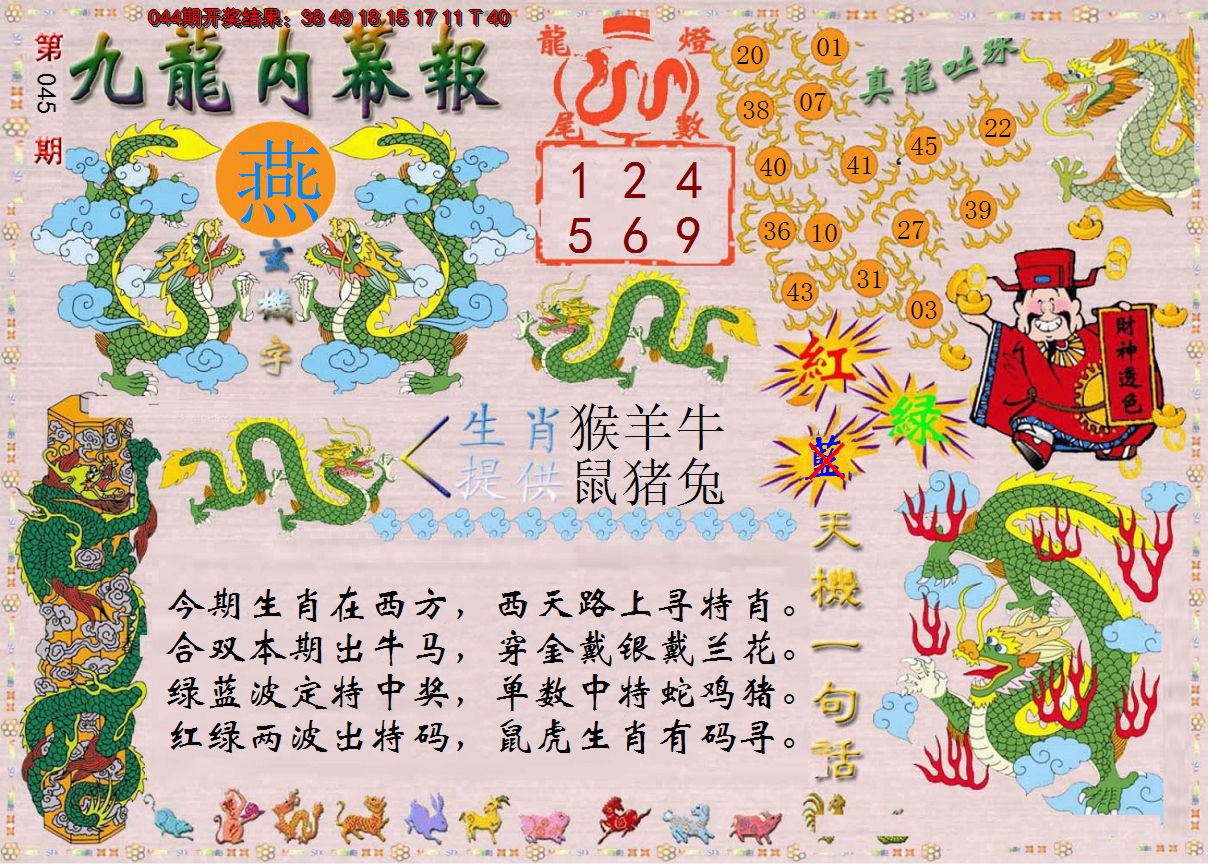 044期开奖结果：38 49 18 15 17 11 T 40
第
045
期
九龍内幕報
燕
玄
機
字
龍燈
尾數
1 2 4
5 6 9
真龍吐珠
20
01
38
07
45
22
40
41
39
36
10
27
31
43
03
財神透色
紅
绿
藍
生肖
提供
猴羊牛
鼠猪兔
今期生肖在西方，西天路上寻特肖。
合双本期出牛马，穿金戴银戴兰花。
绿蓝波定特中奖，单数中特蛇鸡猪。
红绿两波出特码，鼠虎生肖有码寻。
天機一句話